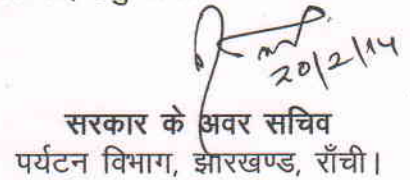 20/2/14
सरकार के अवर सचिव
पर्यटन विभाग, झारखण्ड, राँची।